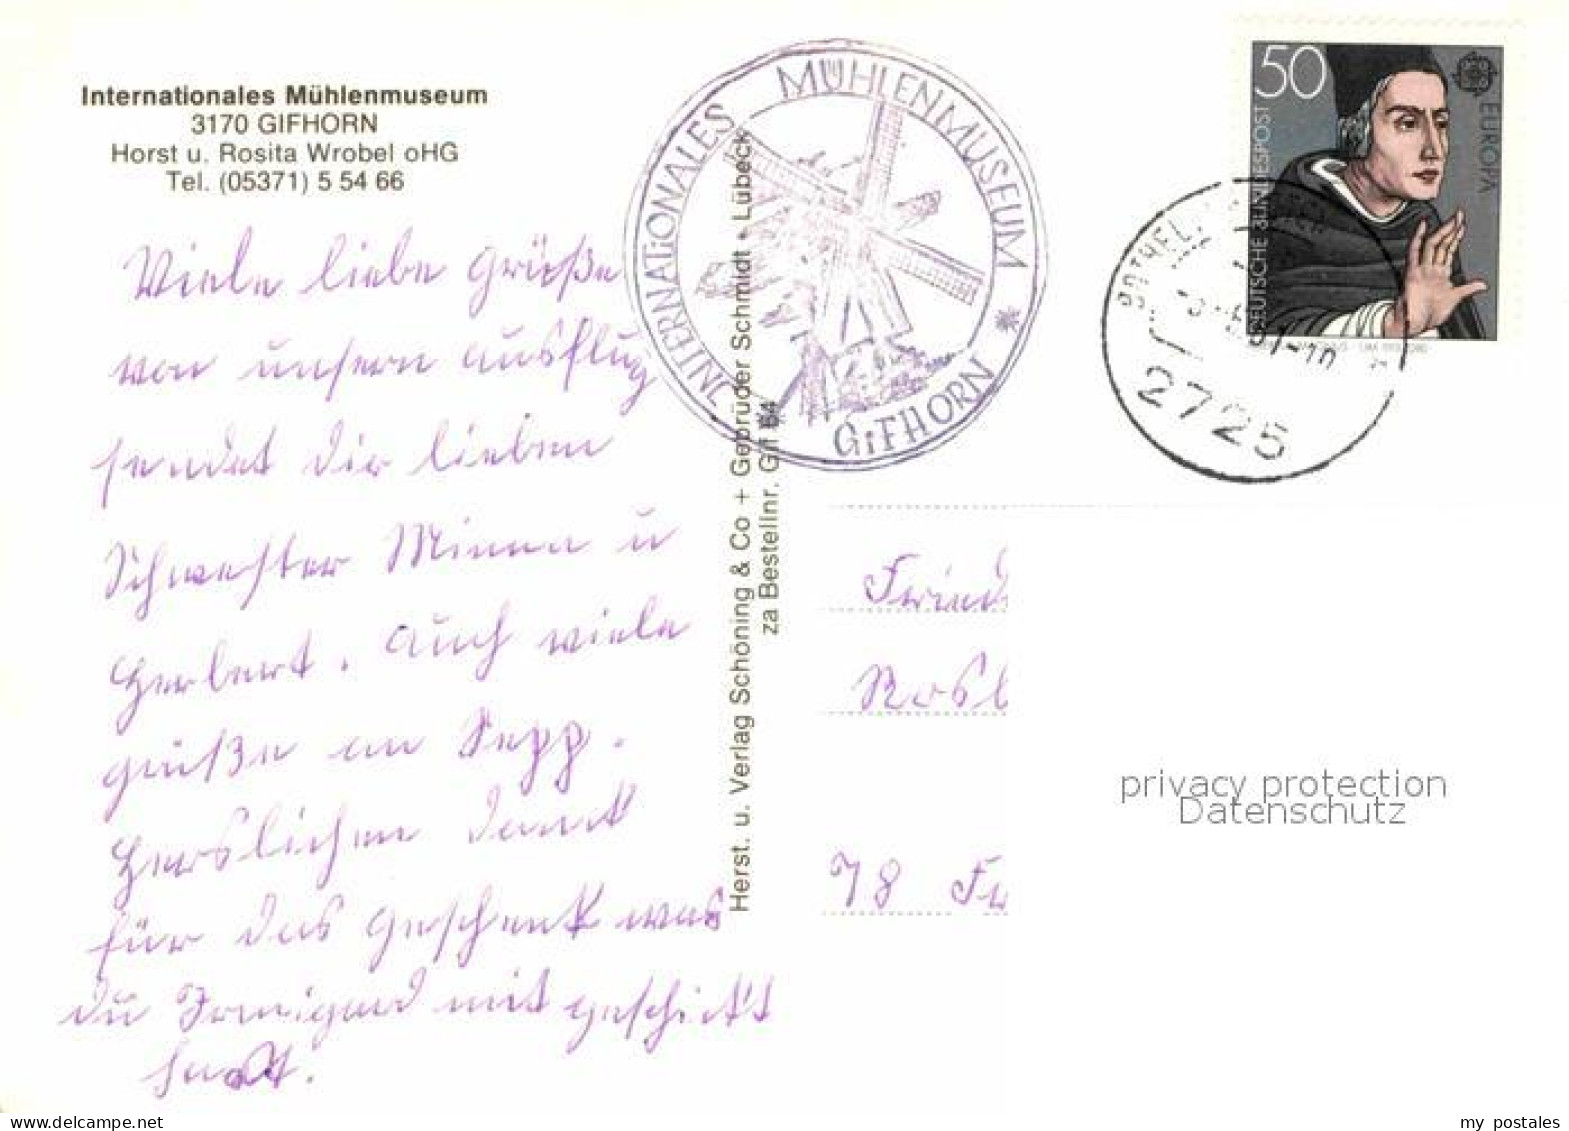 Internationales Mühlenmuseum
3170 GIFHORN
Horst u. Rosita Wrobel oHG
Tel. (05371) 5 54 66
Viele liebe Grüße
von unsern Ausflug
sendet dir lieben
Schwester Minna u
Herbert. Auch viele
grüße an Sepp.
Herslichen Dank
für das Geschenk was
du Irmigard mit geschickt
hast.
INTERNATIONALES MÜHLENMUSEUM
GIFHORN
Herst. u. Verlag Schöning & Co + Gebrüder Schmidt - Lübeck
za Bestellnr. Gif 64
50
DEUTSCHE BUNDESPOST
EUROPA
2725
Fried
Rosl
78 Fr
privacy protection
Datenschutz
my postales